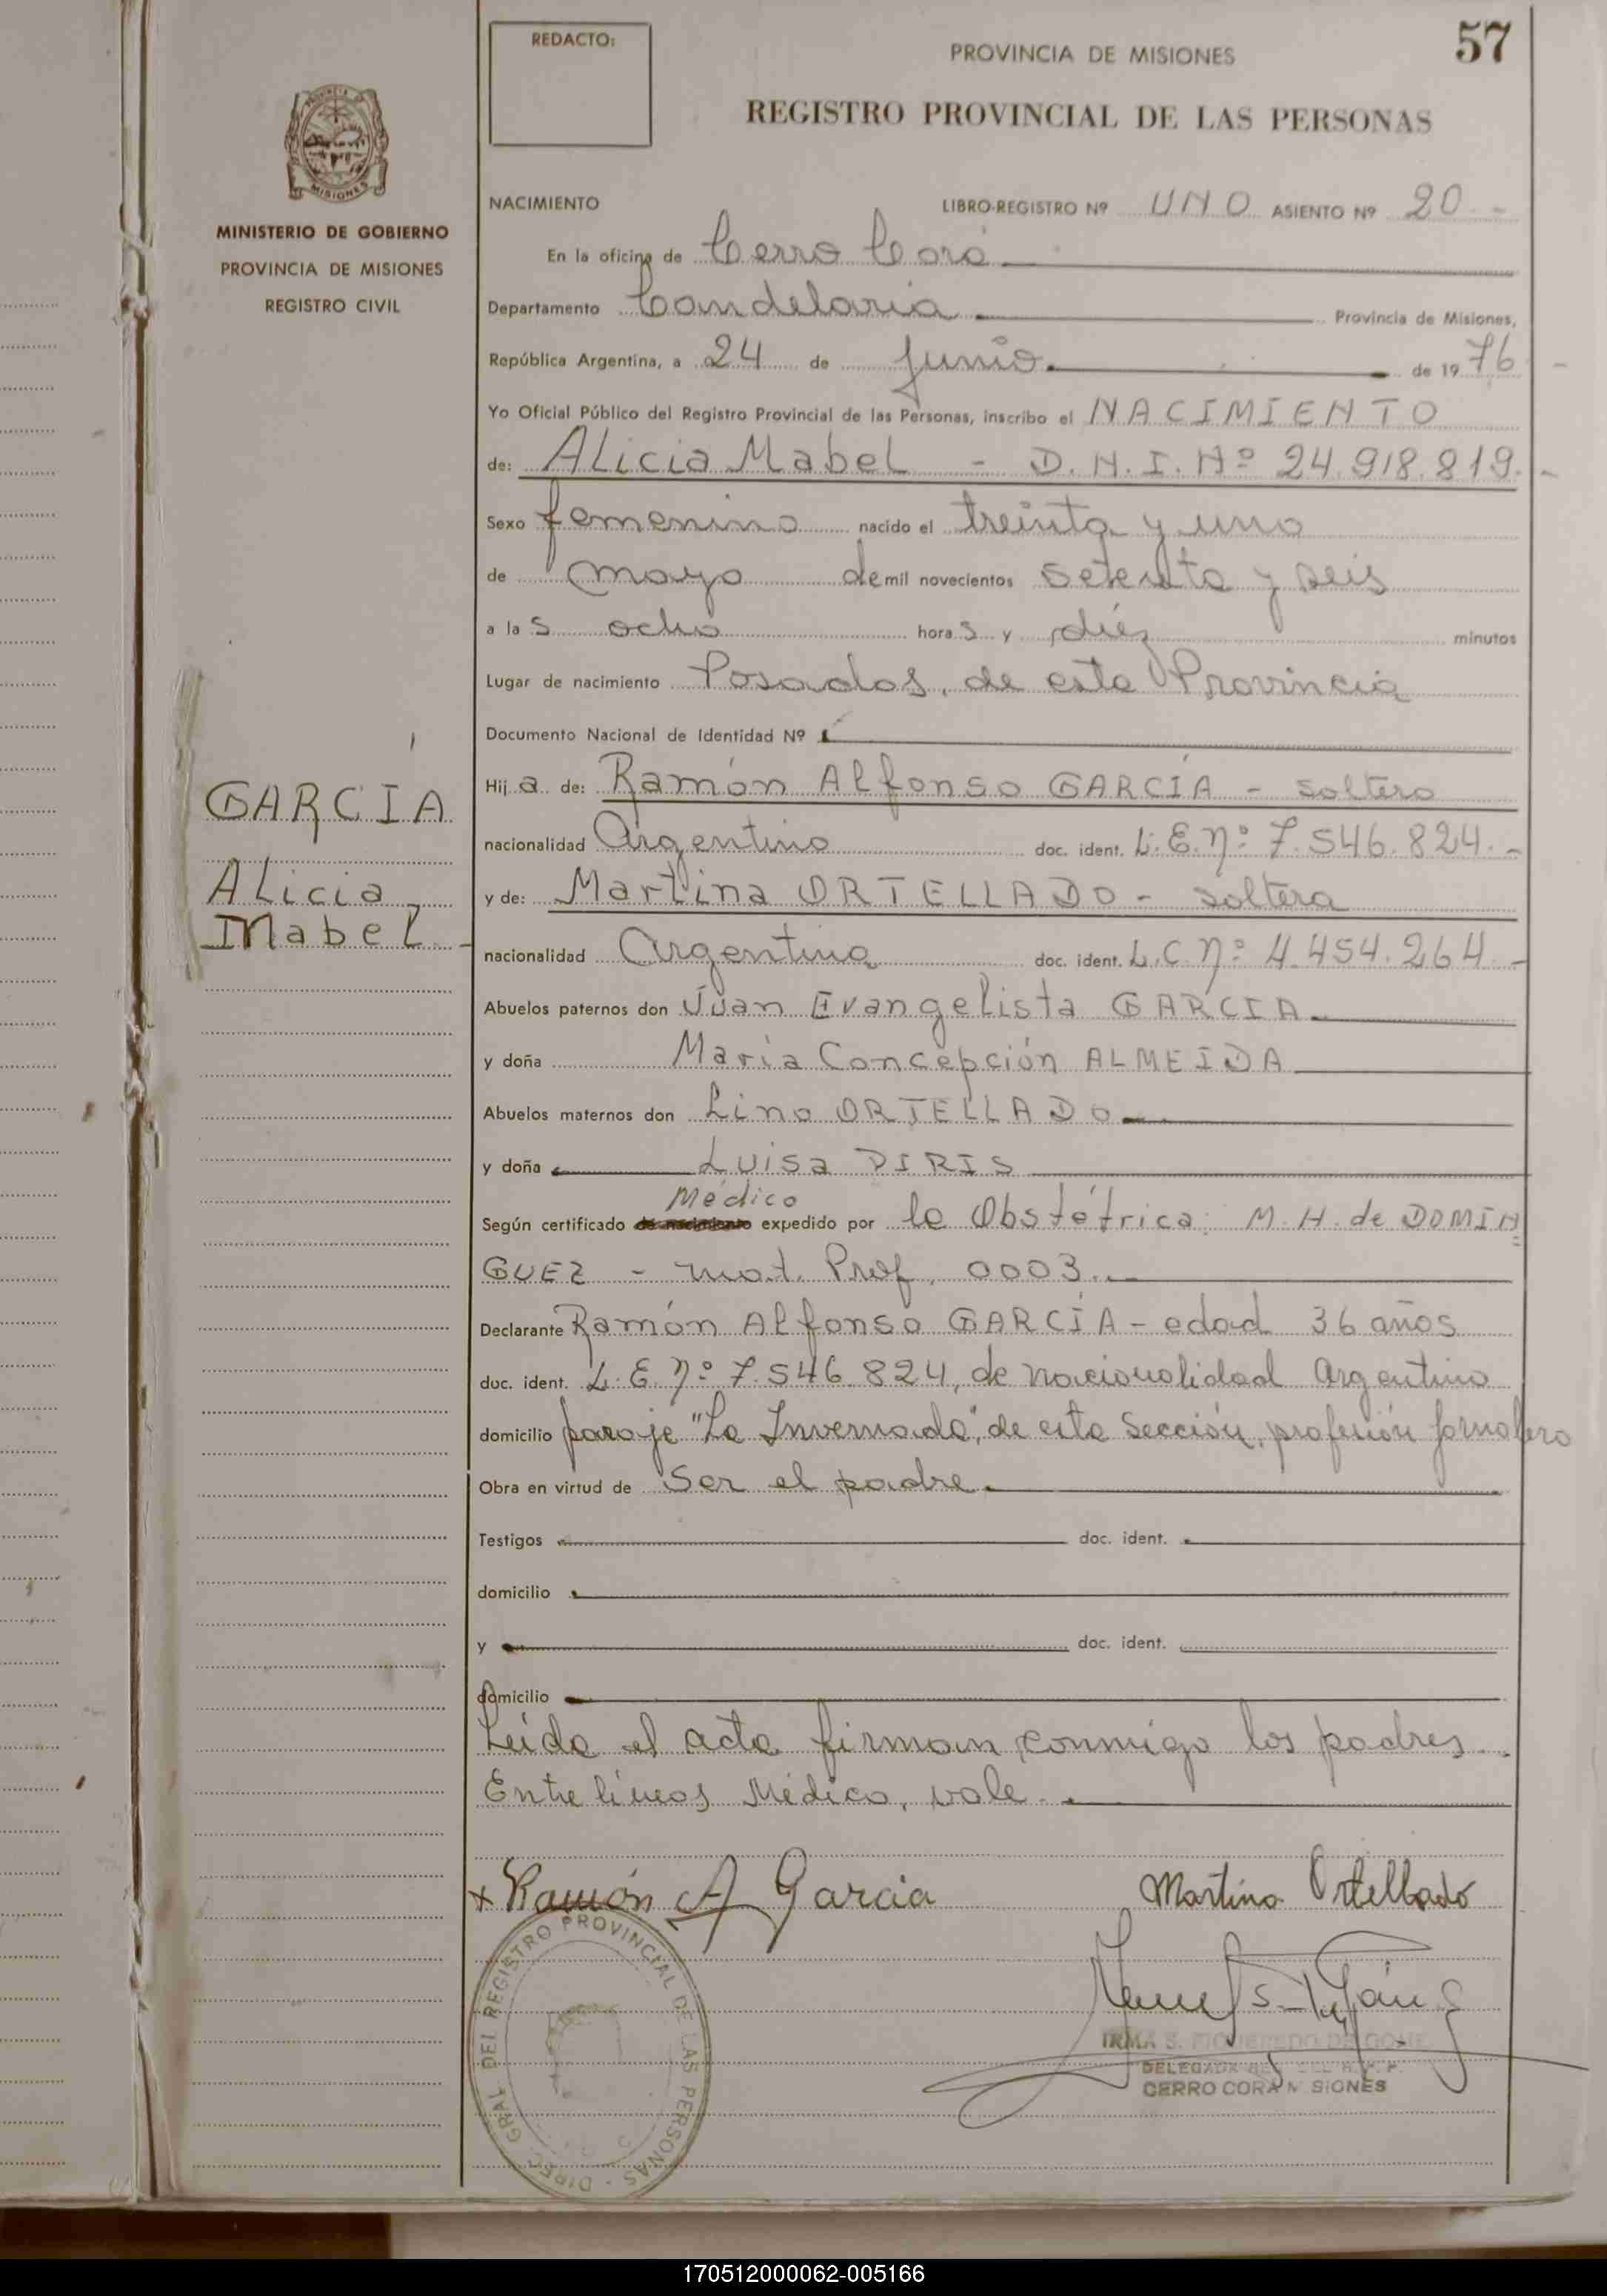 57
REDACTO:
PROVINCIA DE MISIONES
REGISTRO PROVINCIAL DE LAS PERSONAS
MISIONES
MINISTERIO DE GOBIERNO
PROVINCIA DE MISIONES
REGISTRO CIVIL
NACIMIENTO LIBRO-REGISTRO Nº UNO ASIENTO Nº 20.-
En la oficina de Cerro Corá
Departamento Candelaria Provincia de Misiones,
República Argentina, a 24 de junio de 19 76
Yo Oficial Público del Registro Provincial de las Personas, inscribo el NACIMIENTO
de: ALicia MabeL - D.N.I. Nº 24.918.819.-
Sexo femenino nacido el treinta y uno
de mayo de mil novecientos setenta y seis
a las ocho horas y diéz minutos
Lugar de nacimiento Posadas, de esta Provincia
Documento Nacional de Identidad Nº
Hija de: Ramón Alfonso GARCÍA - soltero
nacionalidad Argentino doc. ident. L.E.Nº 7.546.824.-
y de: Martina ORTELLADO - soltera
nacionalidad Argentina doc. ident. L.C.Nº 4.454.264.-
Abuelos paternos don Juan Evangelista GARCÍA
y doña María Concepción ALMEIDA
Abuelos maternos don Lino ORTELLADO
y doña Luisa DIRIS
Médico
Según certificado de nacimiento expedido por la Obstétrica: M.H. de DOMIN
GUEZ - mat. Prof. 0003.
Declarante Ramón Alfonso GARCÍA - edad 36 años
doc. ident. L.E.Nº 7.546.824, de nacionalidad Argentino
domicilio paraje "La Invernada", de esta Sección, profesión jornalero
Obra en virtud de Ser el padre.
Testigos doc. ident.
domicilio
y doc. ident.
domicilio
Leída el acta firman conmigo los padres.
Entre líneas Médico, vale.
GARCÍA
ALicia
MabeL
x Ramón A Garcia Martina Ortellado
DIREC. GRAL. DEL REGISTRO PROVINCIAL DE LAS PERSONAS
IRMA S. FIGUEREDO DE
DELEGADA
CERRO CORA MISIONES
170512000062-005166